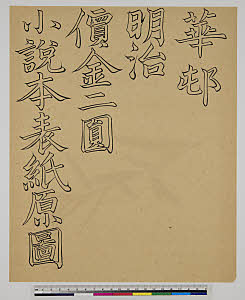 華邨
明治
價金二圓
小說本表紙原圖